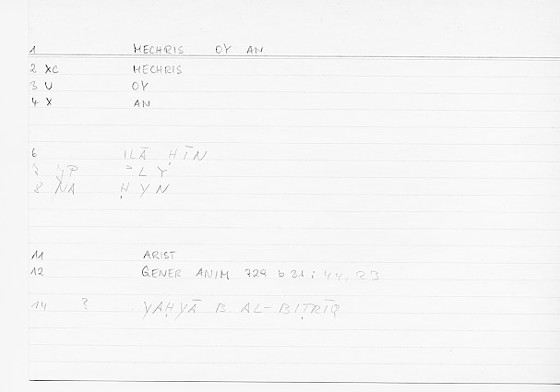 1 MECHRIS OY AN
2 XC MECHRIS
3 U OY
4 X AN
6 ILĀ ḤĪN
7 ɔLY
8 NA ḤYN
11 ARIST
12 GENER ANIM 729 b 31 : 44, 23
14 ? YAḤYĀ B. AL-BIṬRĪQ